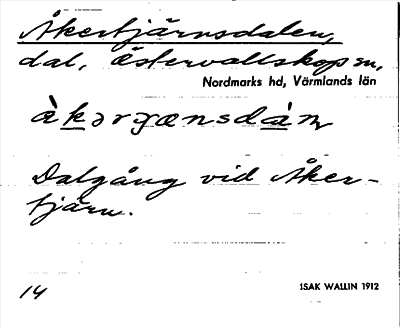 Åkertjärnsdalen,
dal, Östervallskog sn,
Nordmarks hd, Värmlands län
Dalgång vid Åker-
tjärn.
14
ISAK WALLIN 1912